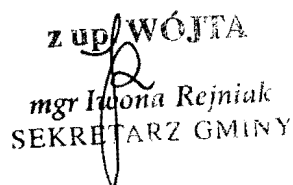 z up. WÓJTA
mgr Iwona Rejniak
SEKRETARZ GMINY